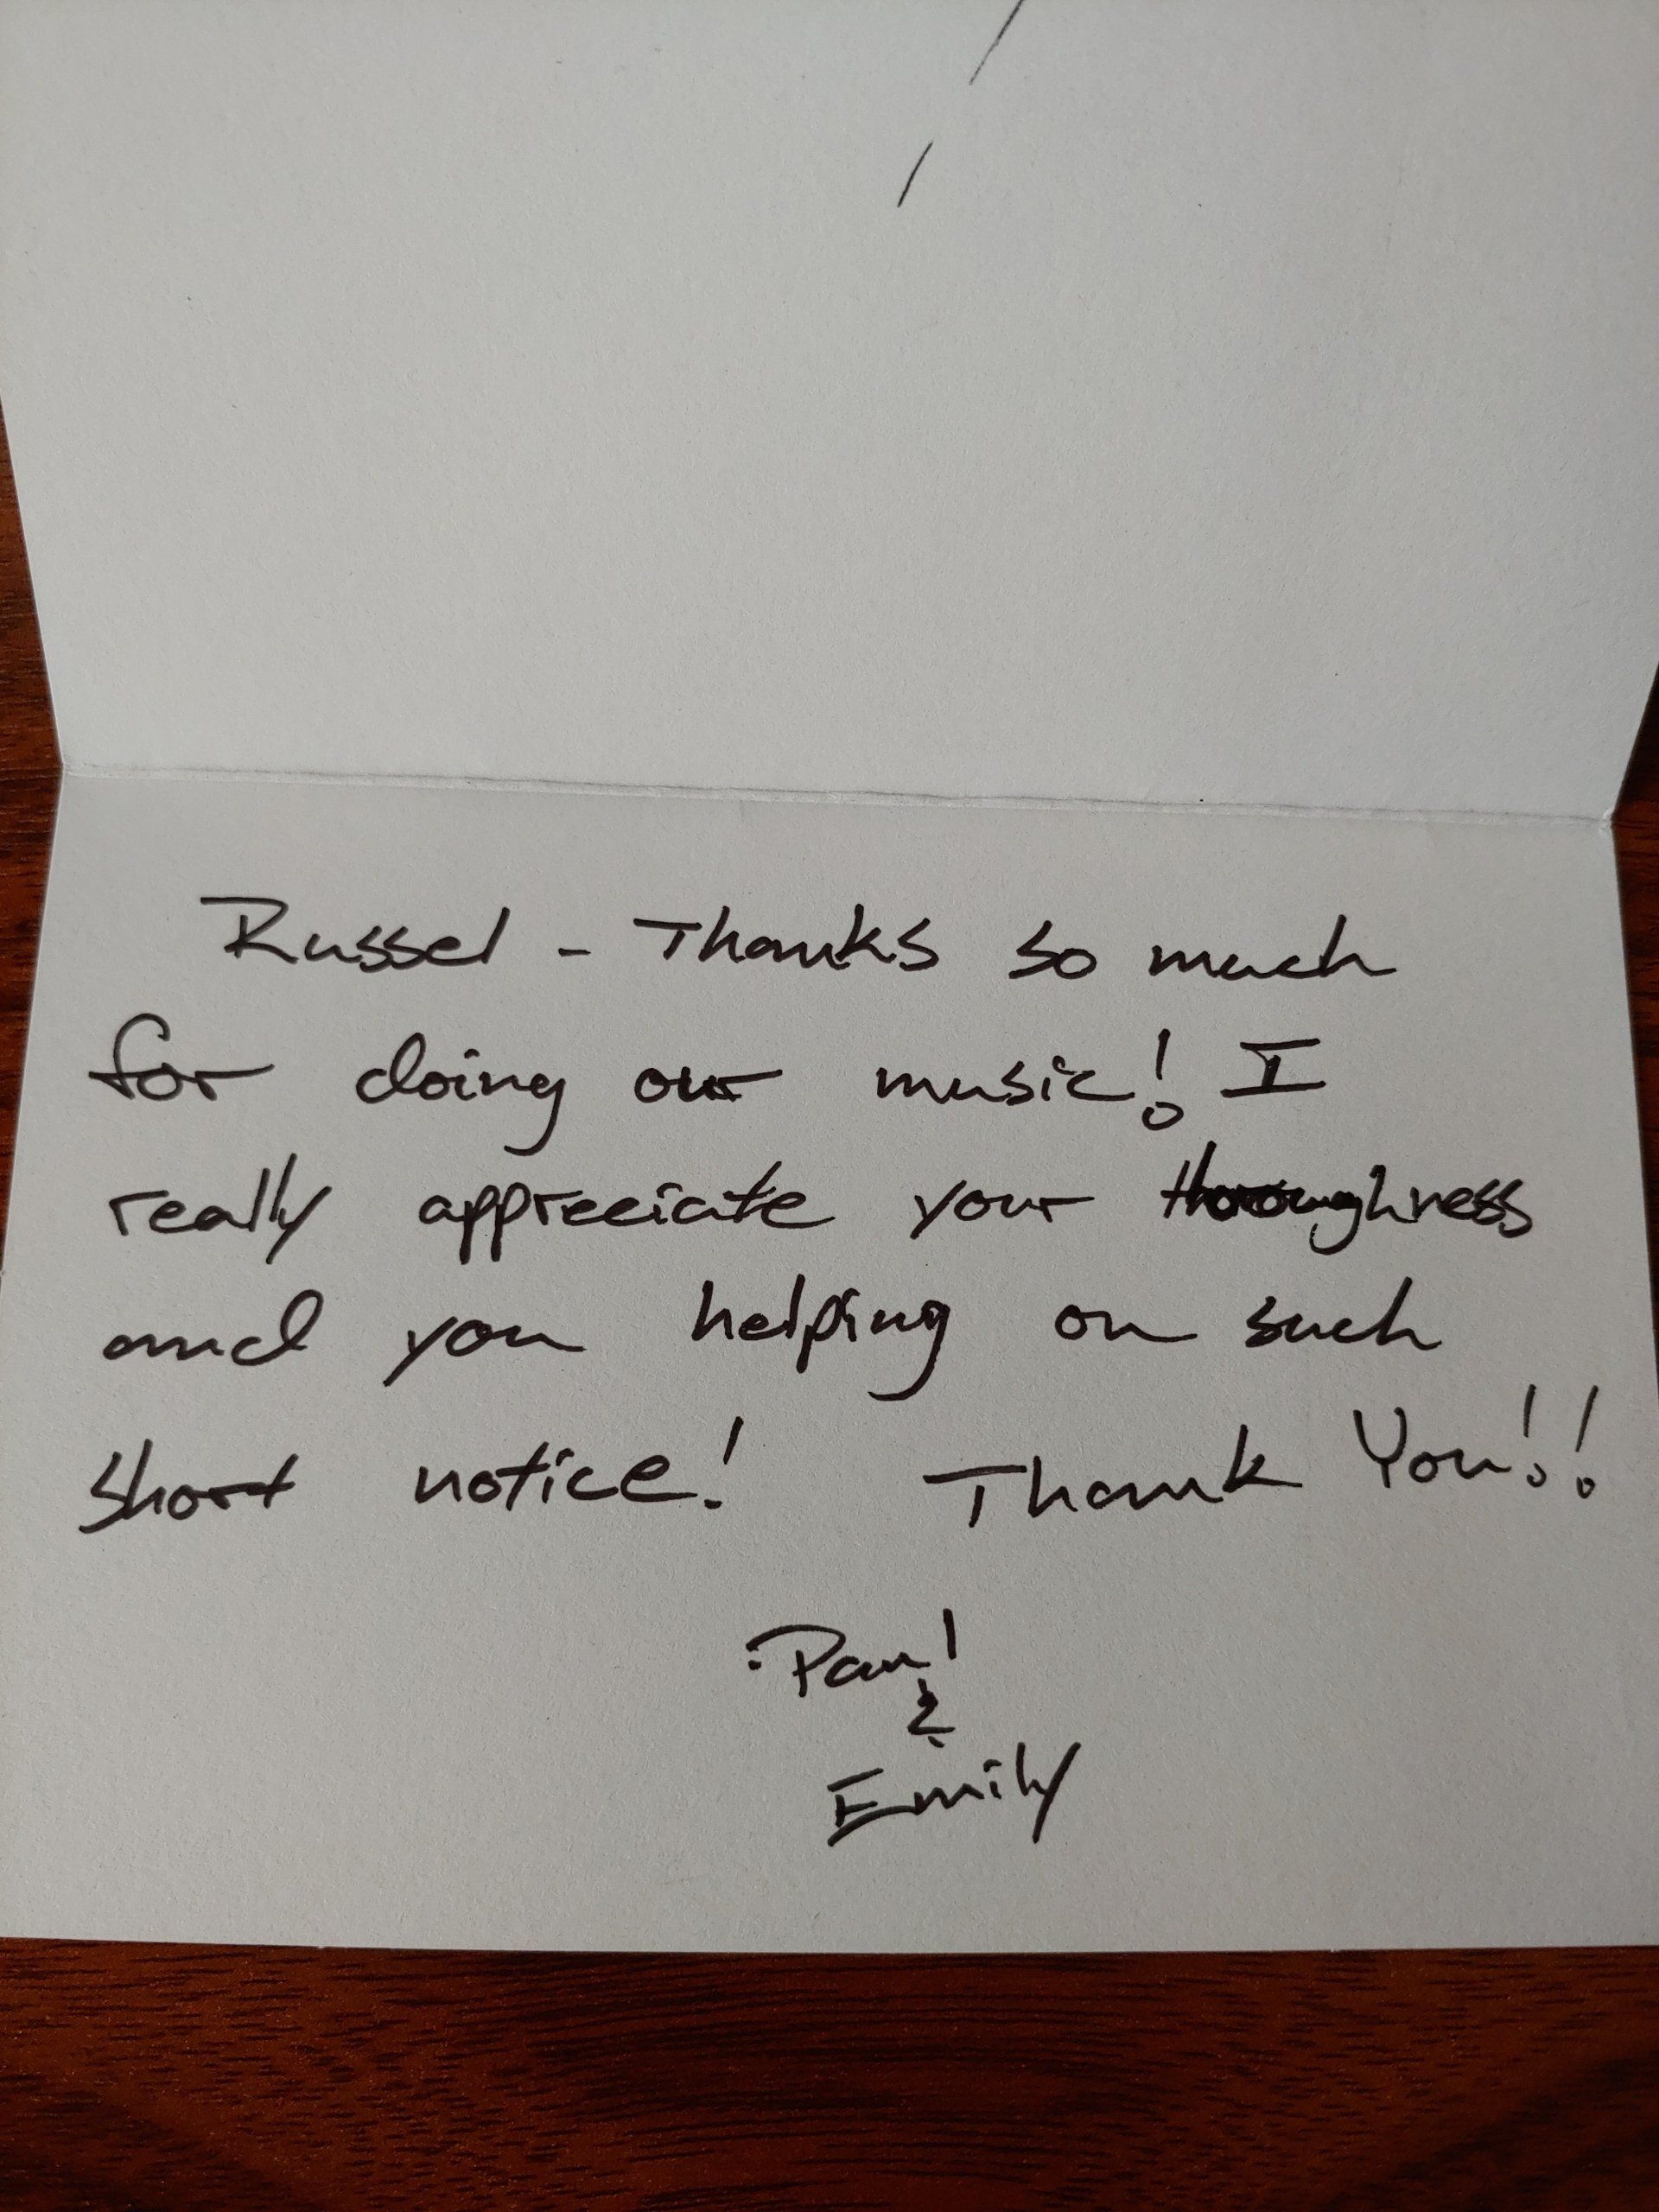 Russel - Thanks so much
for doing our music! I
really appreciate your thoroughness
and you helping on such
short notice! Thank You!!
Paul
&
Emily